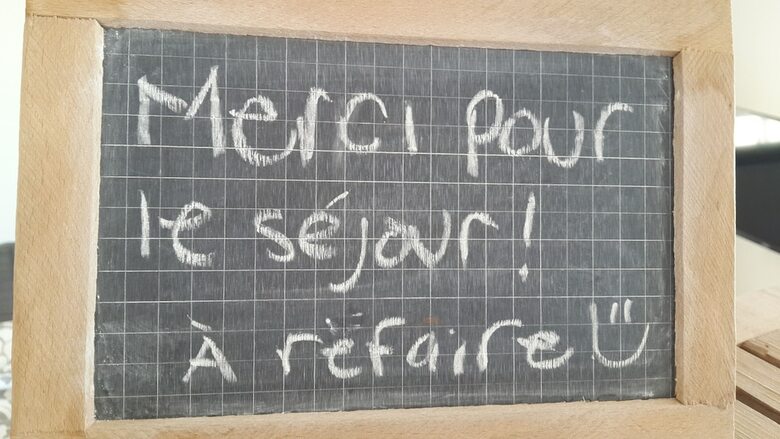 Merci pour
le séjour!
À refaire